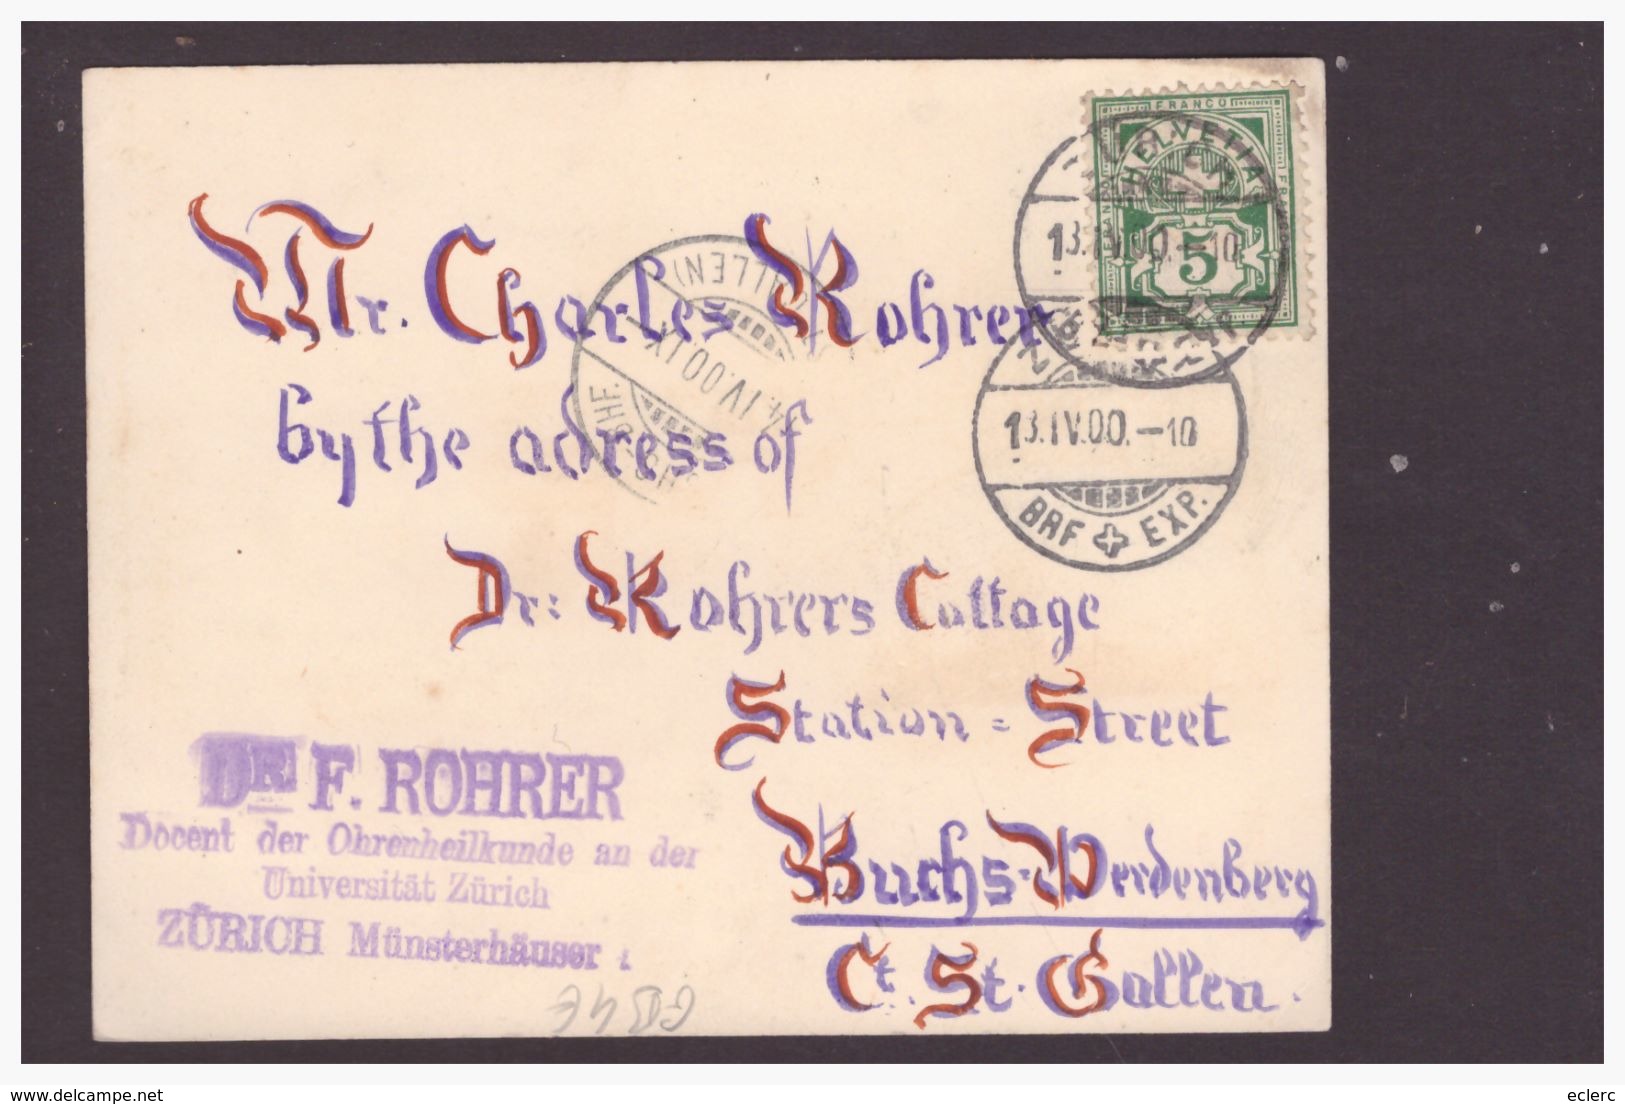 FRANCO
HELVETIA
5
13.IV.00.-10
13.IV.00.-10
BRF EXP.
4.IV.00.IX
Mr. Charles Rohrer
by the adress of
Dr: Rohrers Cottage
Station = Street
Buchs-Werdenberg
Ct. St. Gallen.
DR. F. ROHRER
Docent der Ohrenheilkunde an der
Universität Zürich
ZÜRICH Münsterhäuser
delcampe.net
eclerc